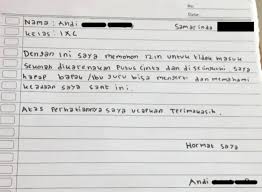 No. :
Date :
Nama : Andi
Samarinda
Kelas : IXC
Dengan ini saya memohon izin untuk tidak masuk
sekolah dikarenakan putus cinta dan diselingkuhi. saya
harap bapak/ibu guru bisa mengerti dan memahami
keadaan saya saat ini.
Atas perhatiannya saya ucapkan Terimakasih.
Hormat saya
Andi